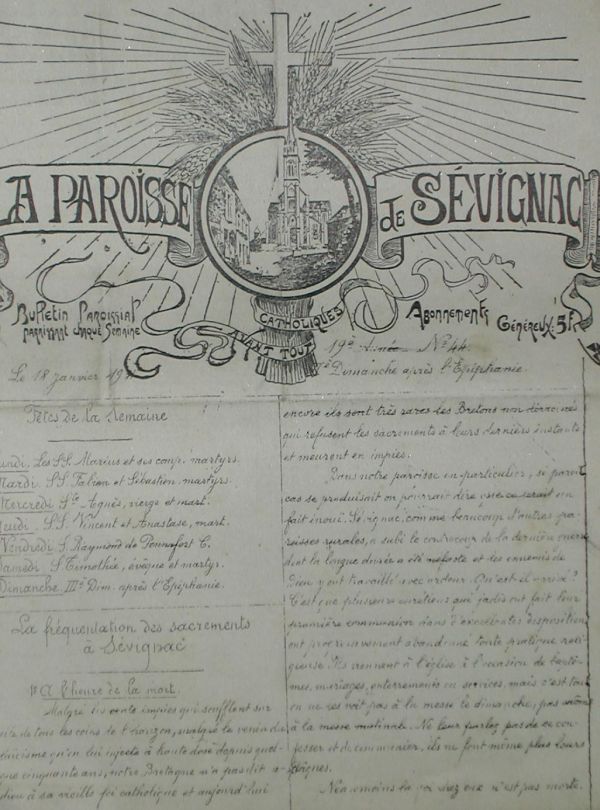 LA PAROISSE
de SÉVIGNAC
Bulletin Paroissial
paraissant chaque Semaine
CATHOLIQUES
AVANT TOUT
Abonnements
Généreux: 5f
19e Année No 44
Le 18 janvier 19
Dimanche après l'Epiphanie.
Fêtes de la Semaine
undi. Les S.S. Marius et ses comp. martyrs.
Mardi. S.S. Fabien et Sébastien, martyrs.
Mercredi Ste Agnès, vierge et mart.
Jeudi. S.S. Vincent et Anastase, mart.
Vendredi S. Raymond de Pennafort C.
Samedi S. Timothée, évêque et martyr.
Dimanche IIIe Dim. après l'Epiphanie.
La fréquentation des sacrements
à Sévignac
1º A l'heure de la mort.
Malgré les vents impies qui soufflent sur
nte de tous les coins de l'horizon, malgré le venin du
laïcisme qu'on lui injecte à haute dose depuis quel-
que cinquante ans, notre Bretagne n'a pas dit a-
dieu à sa vieille foi catholique et aujourd'hui
encore ils sont très rares les Bretons non déracinés
qui refusent les sacrements à leurs derniers instants
et meurent en impies.
Dans notre paroisse en particulier, si pareil
cas se produisait on pourrait dire que ce serait un
fait inouï. Sévignac, comme beaucoup d'autres pa-
roisses rurales, a subi le contrecoup de la dernière guerre
dont la longue durée a été néfaste et les ennemis de
Dieu y ont travaillé avec ardeur. Qu'est-il arrivé?
C'est que plusieurs chrétiens qui jadis ont fait leur
première communion dans d'excellentes dispositions
ont progressivement abandonné toute pratique reli-
gieuse. Ils viennent à l'église à l'occasion de baptê-
mes, mariages, enterrements ou services, mais c'est tout
on ne les voit pas à la messe le dimanche, pas même
à la messe matinale. Ne leur parlez pas de se con-
fesser et de communier, ils ne font même plus leurs
Pâques.
Néanmoins la foi chez eux n'est pas morte.